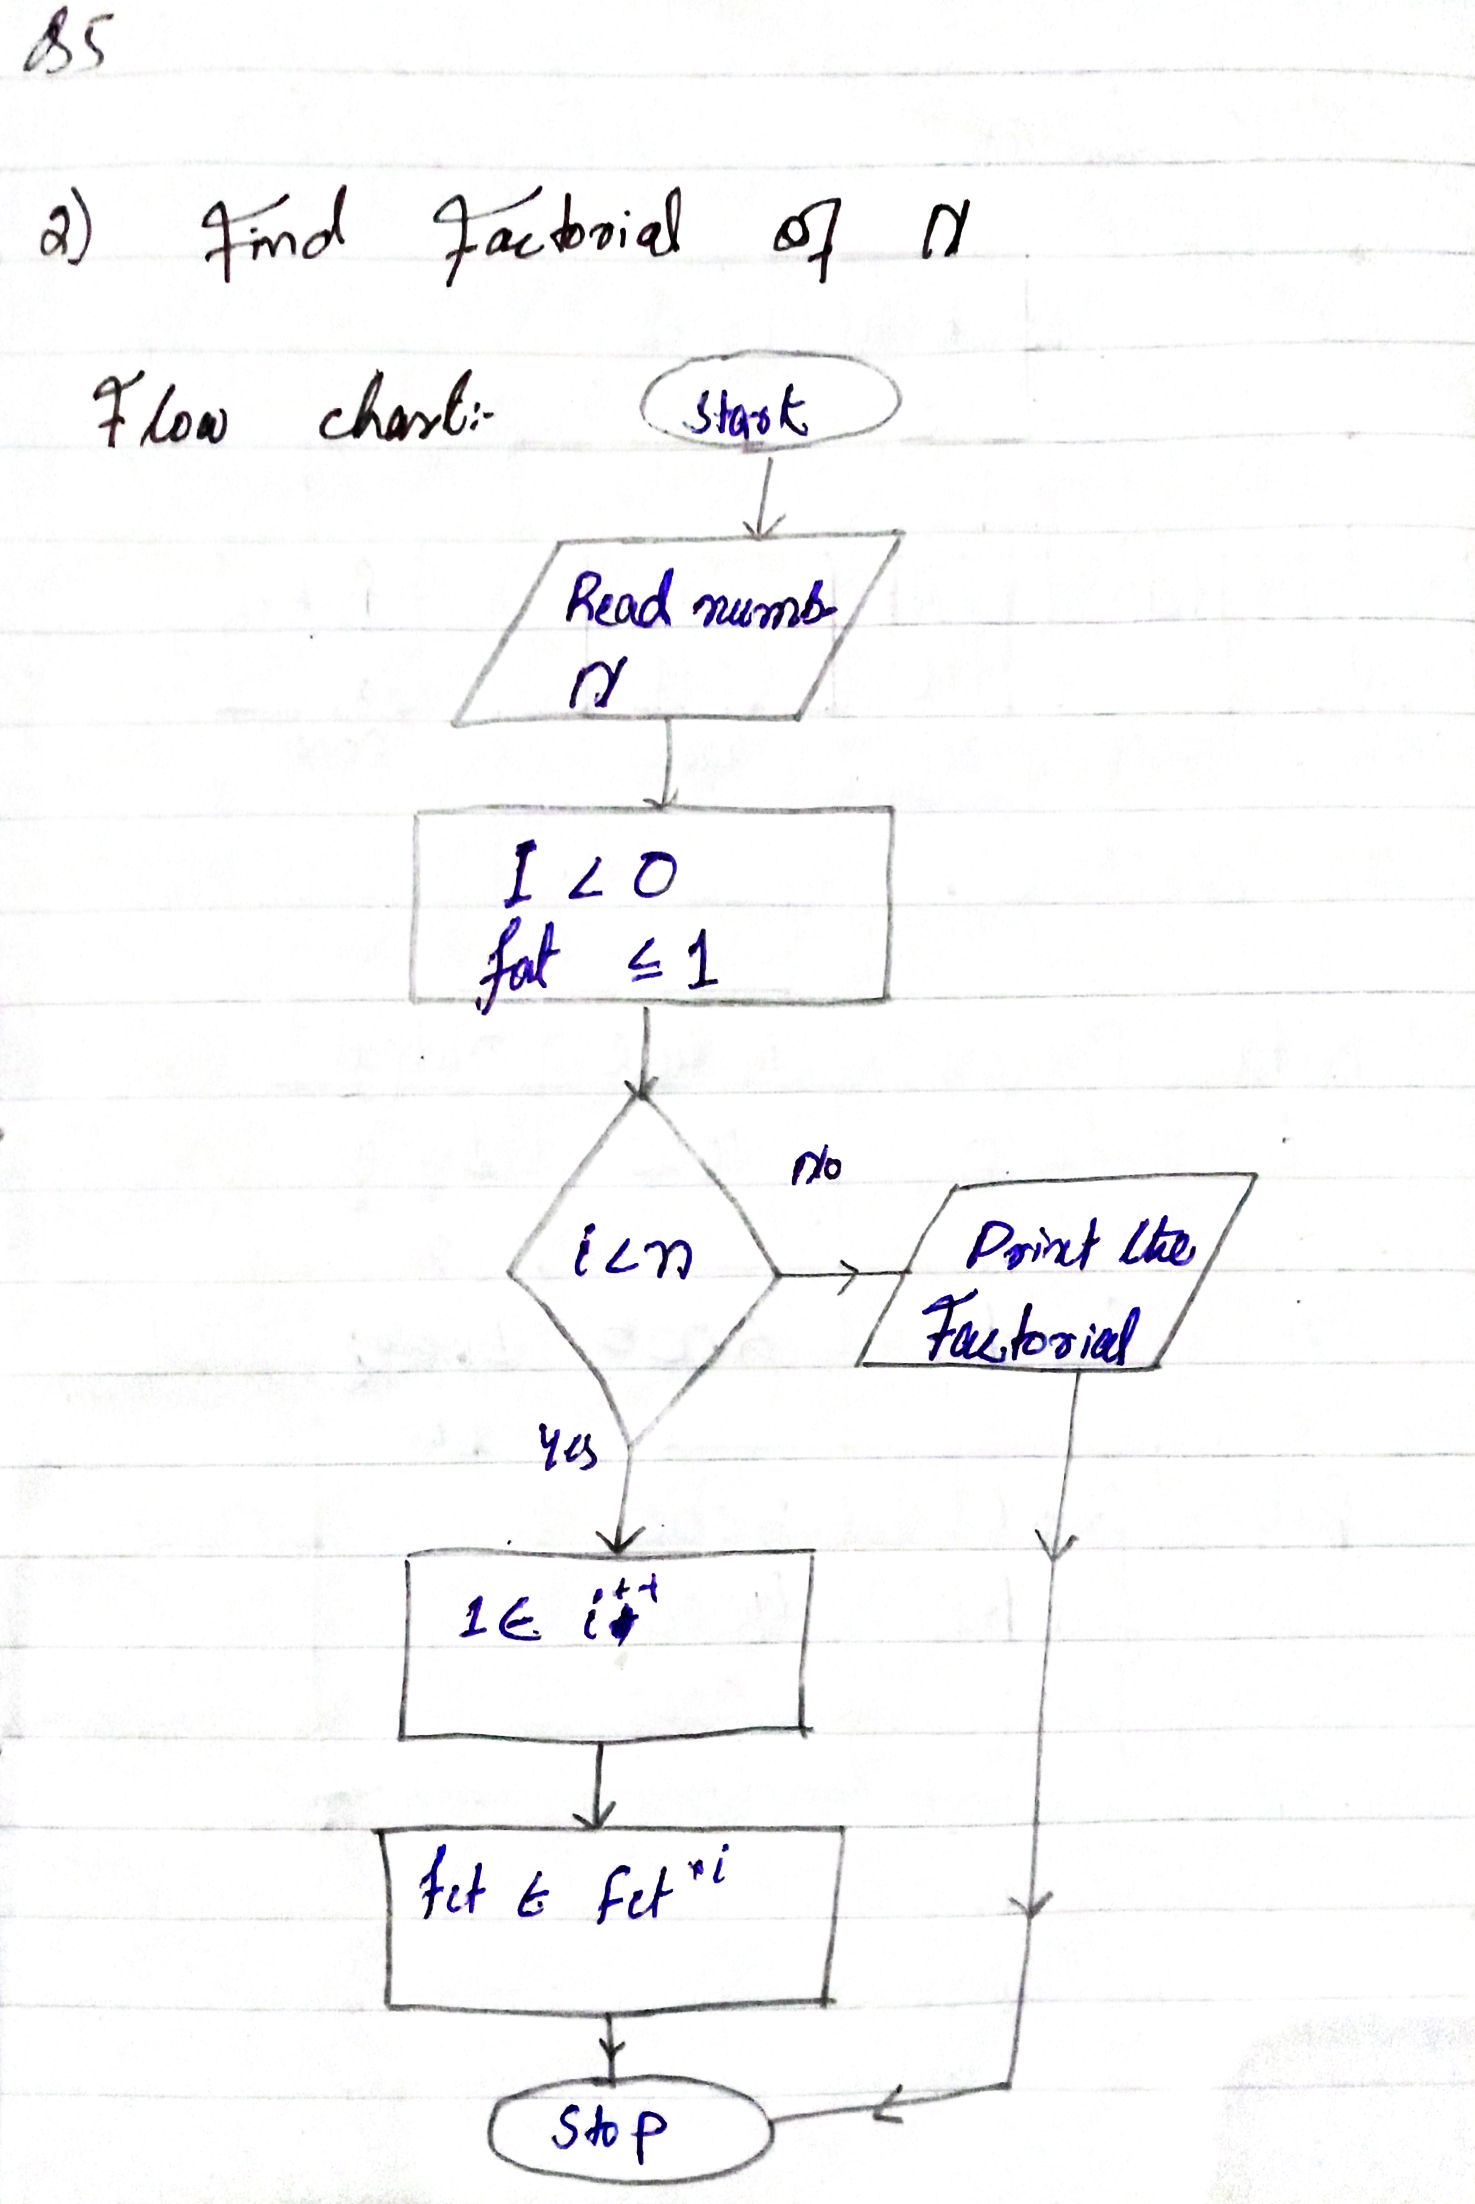 85
2) Find Factorial of N
Flow chart:-
Start
Read numb
N
I < 0
fat ≤ 1
i<n
No
Print the
Factorial
Yes
1 ∈ i++
fct ∈ fct *i
Stop